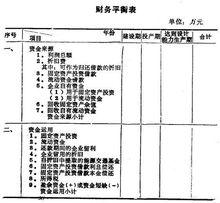 财务平衡表
单位：万元
序号 年份 项目 建设期 投产期 达到设计能力生产期 合计
一、 资金来源
1、利润总额
2、折旧费
其中：可作为归还借款的折旧
3、固定资产投资借款
4、流动资金借款
5、企业自有资金
(1)用于固定资产投资
(2)用于流动资金
6、回收固定资产余值
7、回收自有流动资金
资金来源小计
二、 资金运用
1、固定资产投资
2、流动资金
3、还款期间的企业留利
4、企业留用的折旧
5、
6、固定资产投资借款利息偿还
7、固定资产投资借款本金偿还
8、
9、盈余资金(+)或资金短缺(-)
资金运用小计